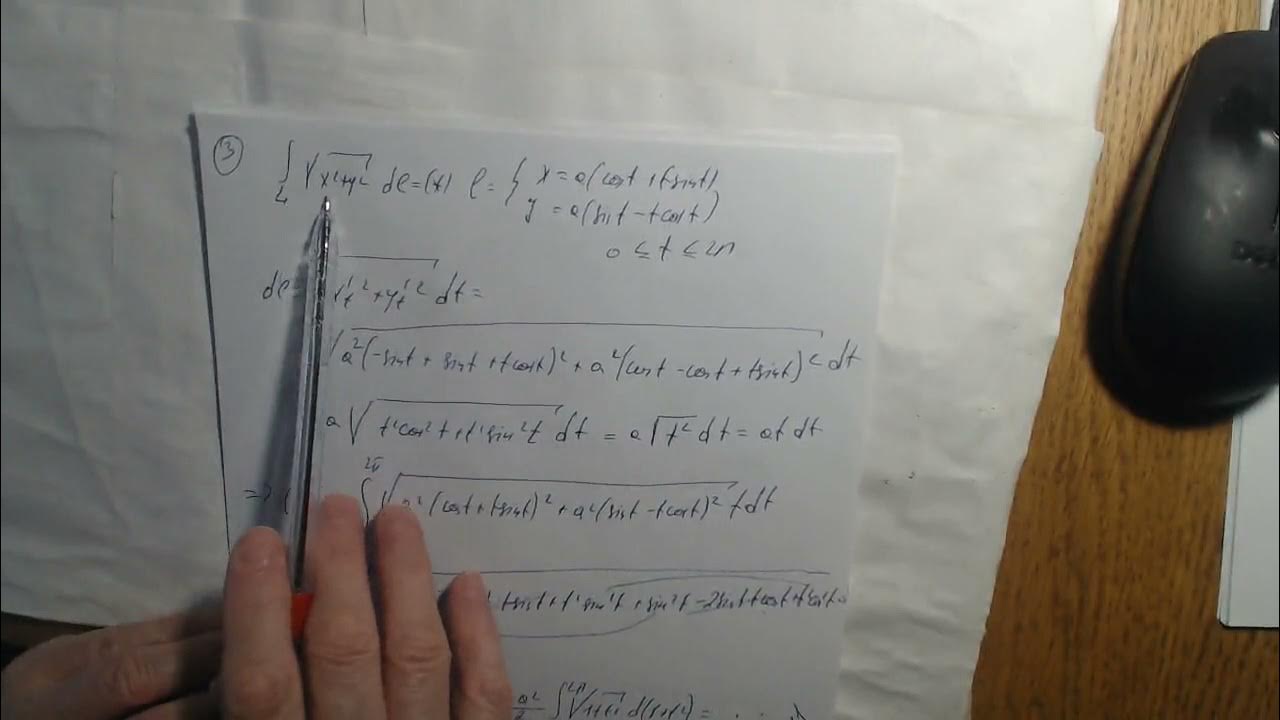 ③ ∫_L √(x²+y²) dl = (*) l = { x = a(cost + tsint)
y = a(sint - tcost)
0 ≤ t ≤ 2π
dl = x't² + y't² dt =
√(a²(-sint + sint + tcost)² + a²(cost - cost + tsint)²) dt
a √(t²cos²t + t²sin²t) dt = a √(t²) dt = at dt
=> ( ∫ 2π √(a²(cost + tsint)² + a²(sint - tcost)²) t dt
tsint + t²sin²t + sin²t - 2sint tcost + t²cos²t
a²/2 ∫ 2π √ d(1+t²) =